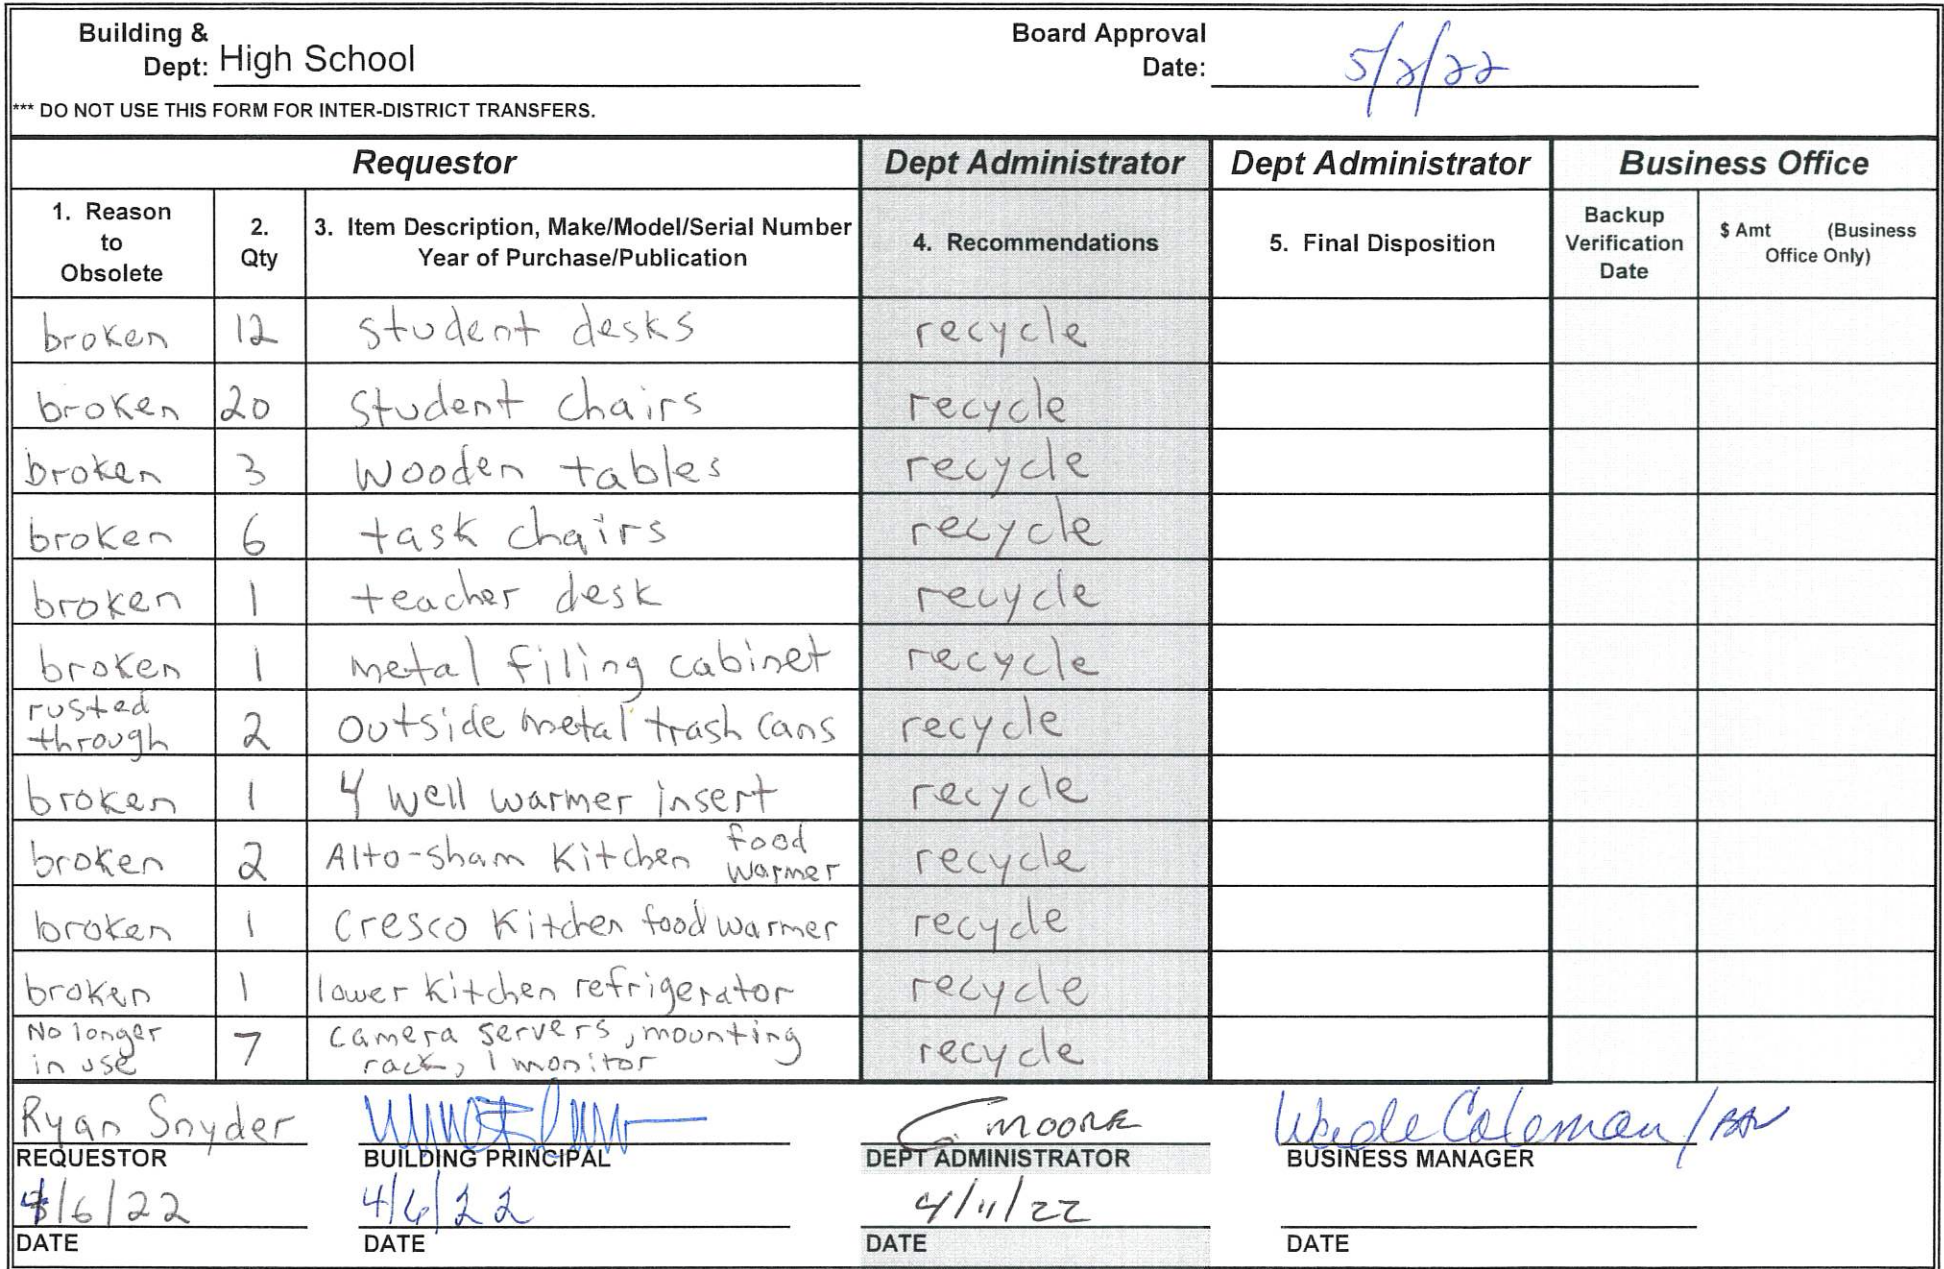 Building & Dept: High School
Board Approval Date: 5/2/22
*** DO NOT USE THIS FORM FOR INTER-DISTRICT TRANSFERS.
Requestor Dept Administrator Dept Administrator Business Office
1. Reason to Obsolete
2. Qty
3. Item Description, Make/Model/Serial Number Year of Purchase/Publication
4. Recommendations
5. Final Disposition
Backup Verification Date
$ Amt (Business Office Only)
broken 12 student desks recycle
broken 20 student chairs recycle
broken 3 wooden tables recycle
broken 6 task chairs recycle
broken 1 teacher desk recycle
broken 1 metal filing cabinet recycle
rusted through 2 outside metal trash cans recycle
broken 1 4 well warmer insert recycle
broken 2 Alto-sham Kitchen food warmer recycle
broken 1 Cresco Kitchen food warmer recycle
broken 1 lower kitchen refrigerator recycle
No longer in use 7 camera servers, mounting rack, 1 monitor recycle
Ryan Snyder
C. MOORE
Wade Coleman
REQUESTOR BUILDING PRINCIPAL DEPT ADMINISTRATOR BUSINESS MANAGER
4/6/22 4/6/22 4/11/22
DATE DATE DATE DATE